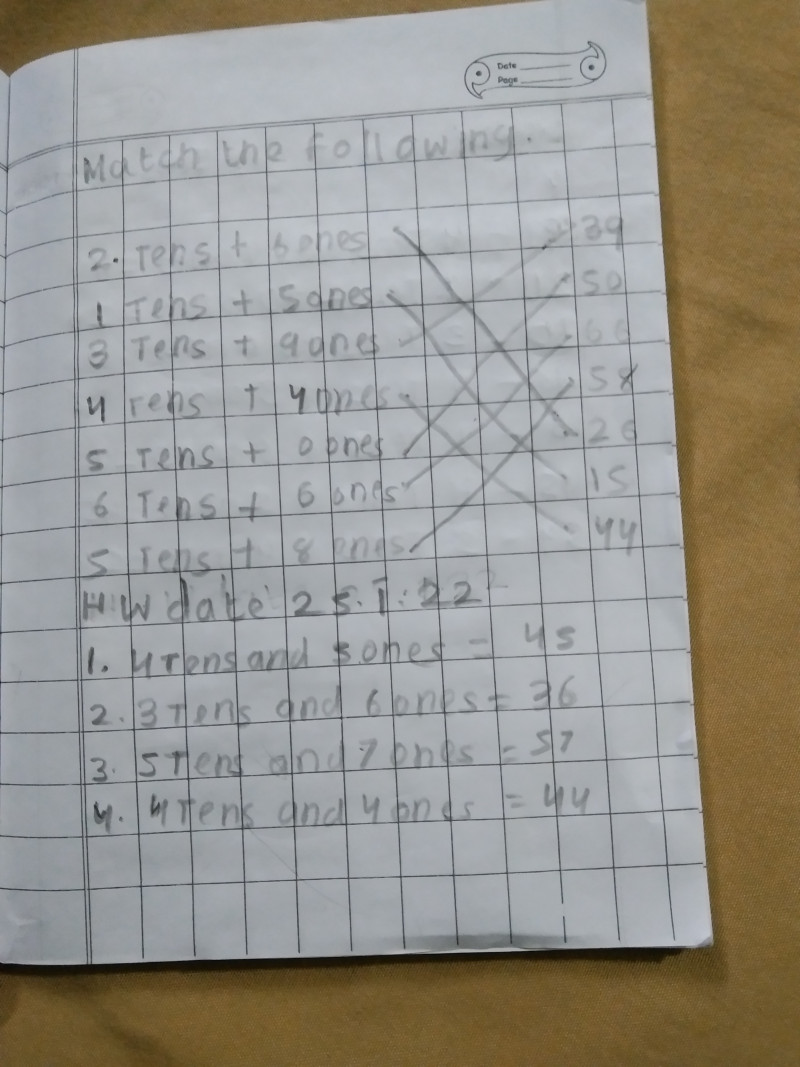 Date
Page
Match the following.
2. Tens + 6 ones 39
1 Tens + 5 ones 50
3 Tens + 9 ones 66
4 Tens + 4 ones 58
5 Tens + 0 ones 26
6 Tens + 6 ones 15
5 Tens + 8 ones 44
H.W date 25.1.22
1. 4 Tens and 5 ones = 45
2. 3 Tens and 6 ones = 36
3. 5 Tens and 7 ones = 57
4. 4 Tens and 4 ones = 44